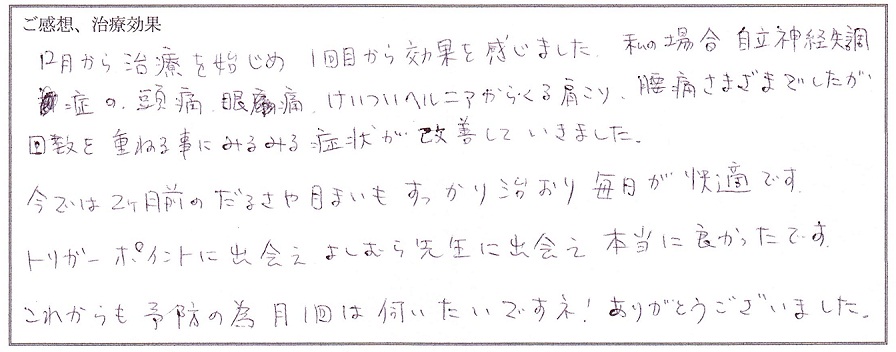 ご感想、治療効果
12月から治療を始じめ 1回目から効果を感じました 私の場合 自立神経失調
症の、頭痛、眼痛、けいついヘルニアからくる肩こり、腰痛さまざまでしたが
回数を重ねる事にみるみる症状が改善していきました。
今では2ヶ月前のだるさや目まいもすっかり治おり毎日が快適です。
トリガーポイントに出会えよしむら先生に出会え本当に良かったです。
これからも予防の為月1回は伺いたいですネ!ありがとうございました。